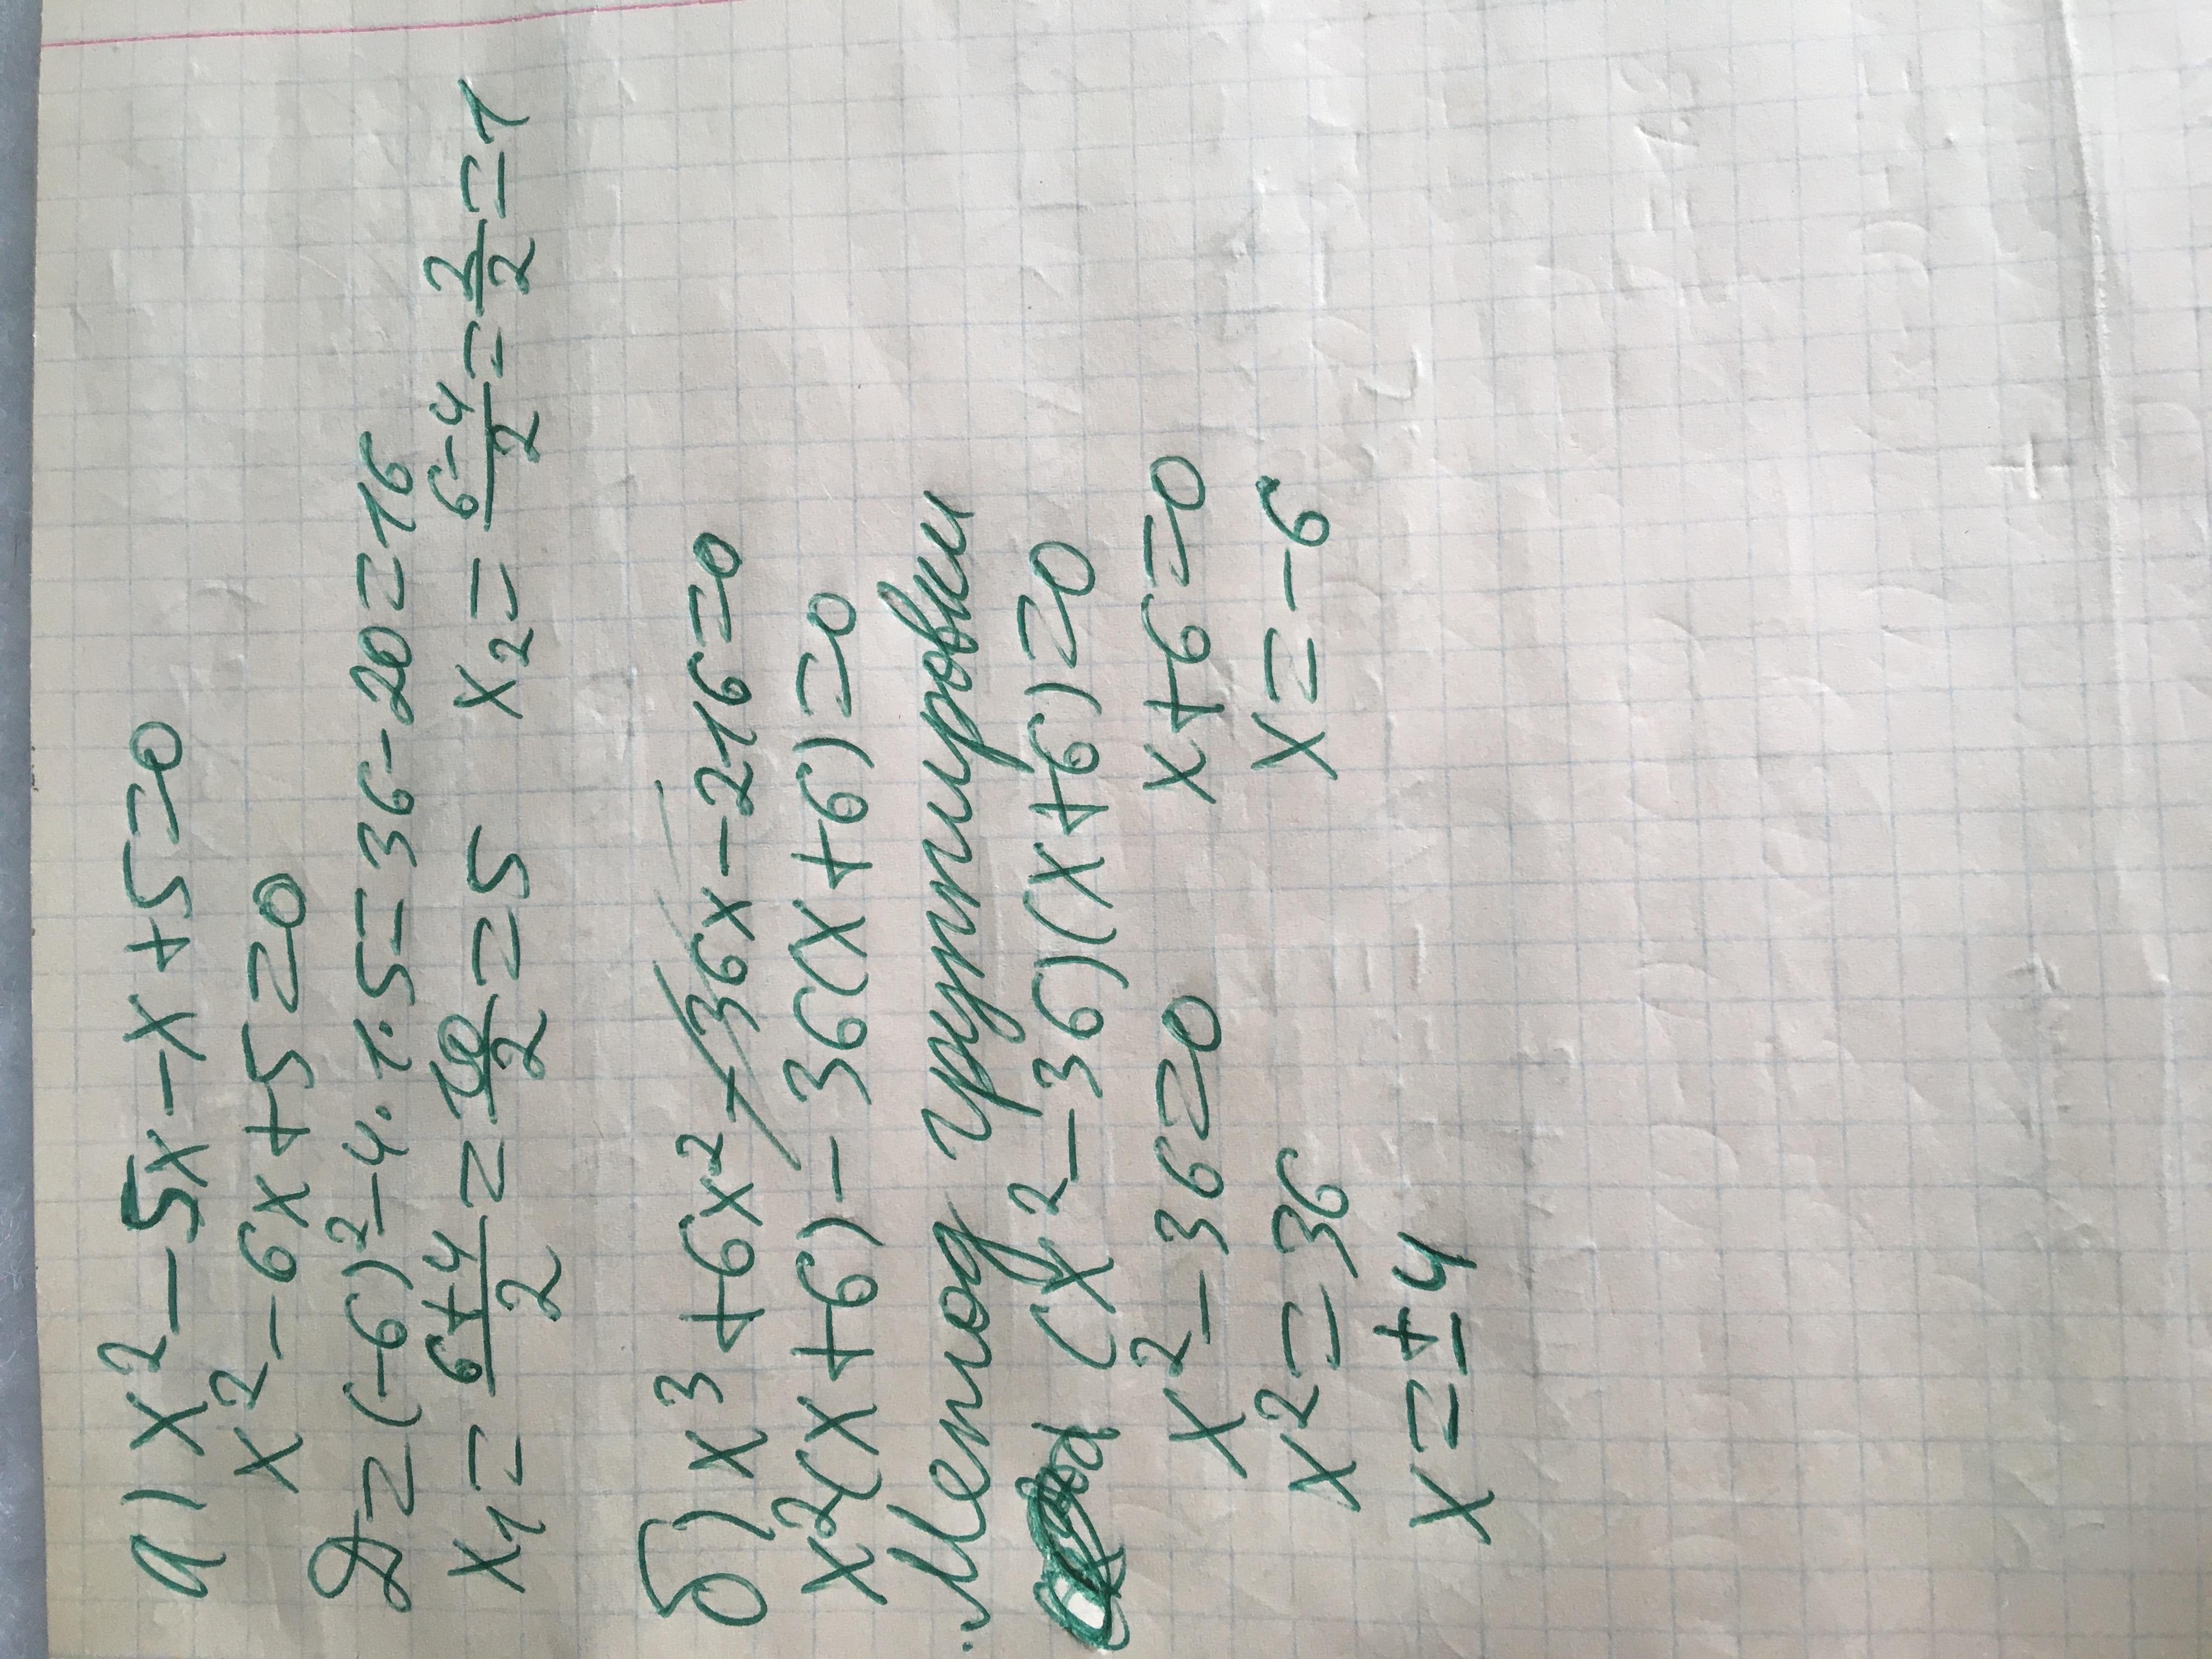 а) x² - 5x - x + 5 = 0
x² - 6x + 5 = 0
D = (-6)² - 4 · 1 · 5 = 36 - 20 = 16
x₁ = (6+4)/2 = 10/2 = 5 x₂ = (6-4)/2 = 2/2 = 1
б) x³ + 6x² - 36x - 216 = 0
x²(x + 6) - 36(x + 6) = 0
Метод группировки
(x² - 36)(x + 6) = 0
x² - 36 = 0 x + 6 = 0
x² = 36 x = -6
x = ±4